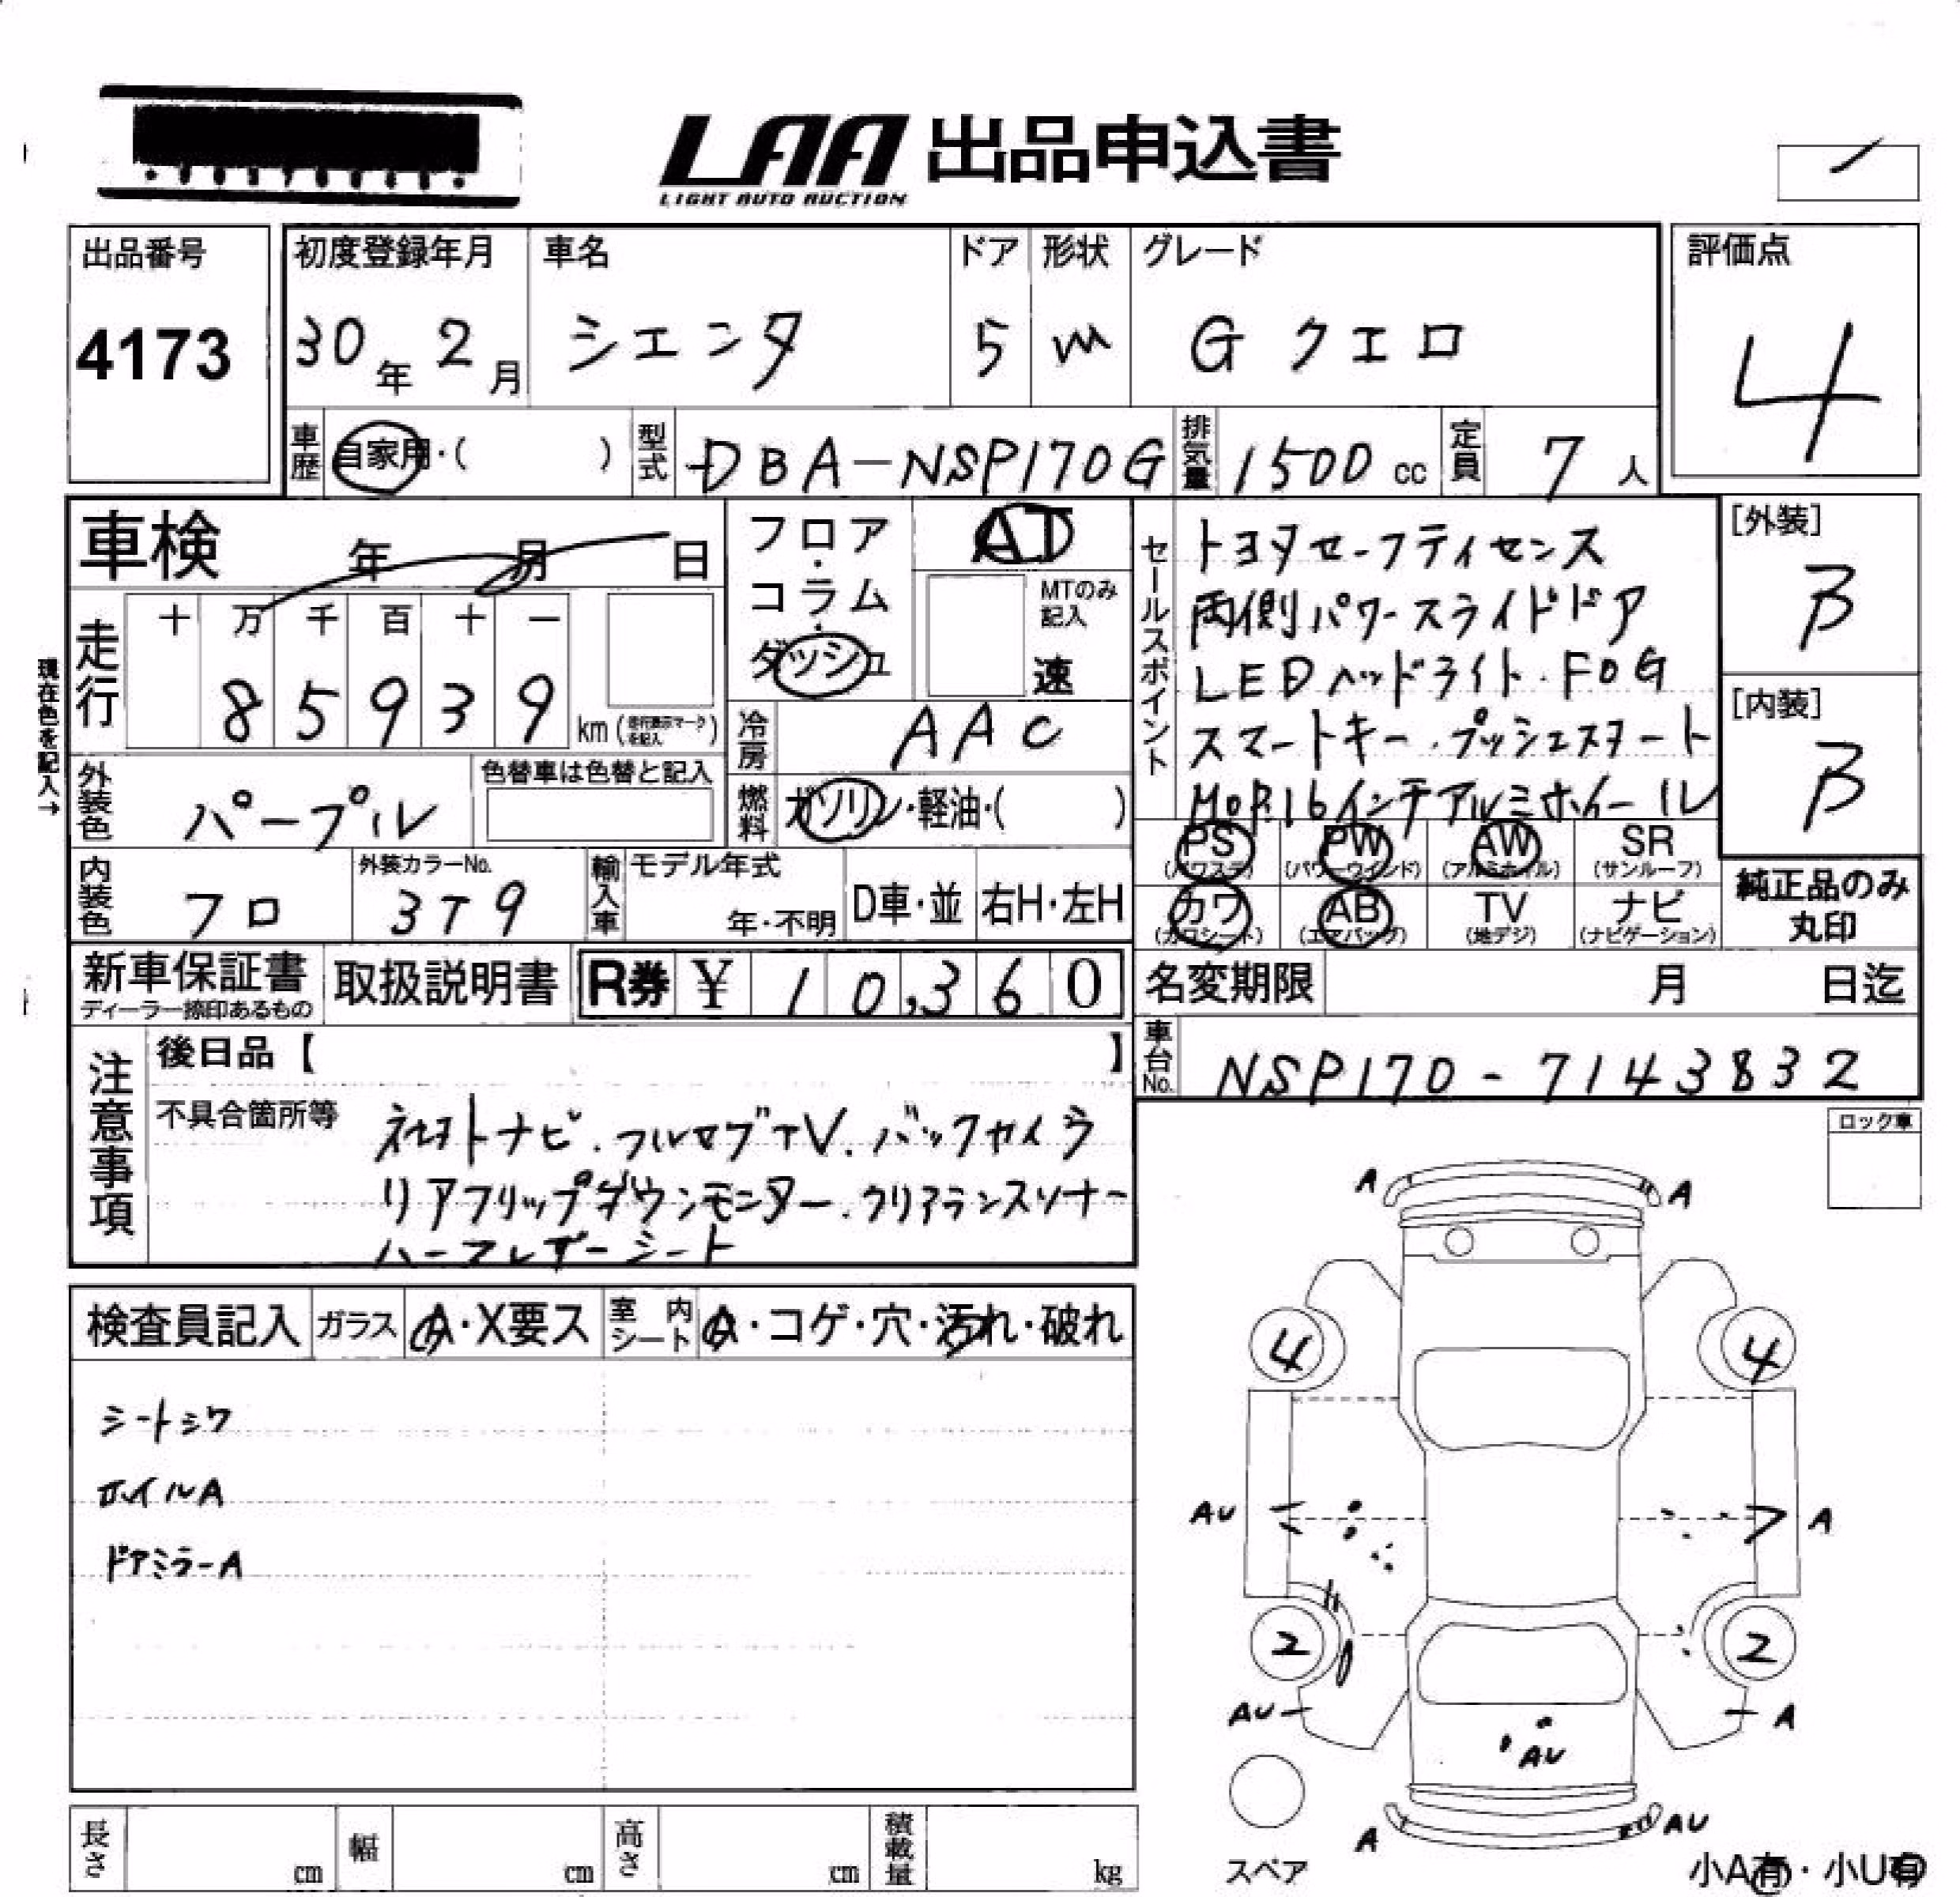 LAA 出品申込書
LIGHT AUTO AUCTION
出品番号
4173
初度登録年月
30年 2月
車名
シエンタ
ドア
5
形状
m
グレード
G クエロ
評価点
4
車歴
自家用・( )
型式
DBA-NSP170G
排気量
1500 cc
定員
7 人
車検 年 月 日
フロア・コラム・ダッシュ
AT
MTのみ記入
速
走行
十 万 千 百 十 一
8 5 9 3 9
km (走行表示マークを記入)
現在色を記入→
冷房
AAC
燃料
ガソリン・軽油・( )
外装色
パープル
色替車は色替と記入
内装色
クロ
外装カラーNo.
3T9
輸入車
モデル年式
年・不明
D車・並
右H・左H
セールスポイント
トヨタセーフティセンス
両側パワースライドドア
LEDヘッドライト・FOG
スマートキー・プッシュスタート
MOP.16インチアルミホイール
[外装]
B
[内装]
B
PS (パワステ)
PW (パワーウインド)
AW (アルミホイル)
SR (サンルーフ)
カワ (カワシート)
AB (エアバッグ)
TV (地デジ)
ナビ (ナビゲーション)
純正品のみ
丸印
新車保証書
ディーラー捺印あるもの
取扱説明書
R券 ¥ 10,360
名変期限 月 日迄
車台No.
NSP170-7143832
注意事項
後日品【 】
不具合箇所等
ネオトナビ.フルセグTV.バックカメラ
リアフリップダウンモニター.クリアランスソナー
ハーフレザーシート
検査員記入
ガラス
A・X要ス
室内シート
A・コゲ・穴・汚れ・破れ
シートシワ
ホイルA
ドアミラーA
ロック車
A A
4 4
AU A
2 2
AU A
AU
A AU
スペア
小A有・小U有
長さ cm
幅 cm
高さ cm
積載量 kg